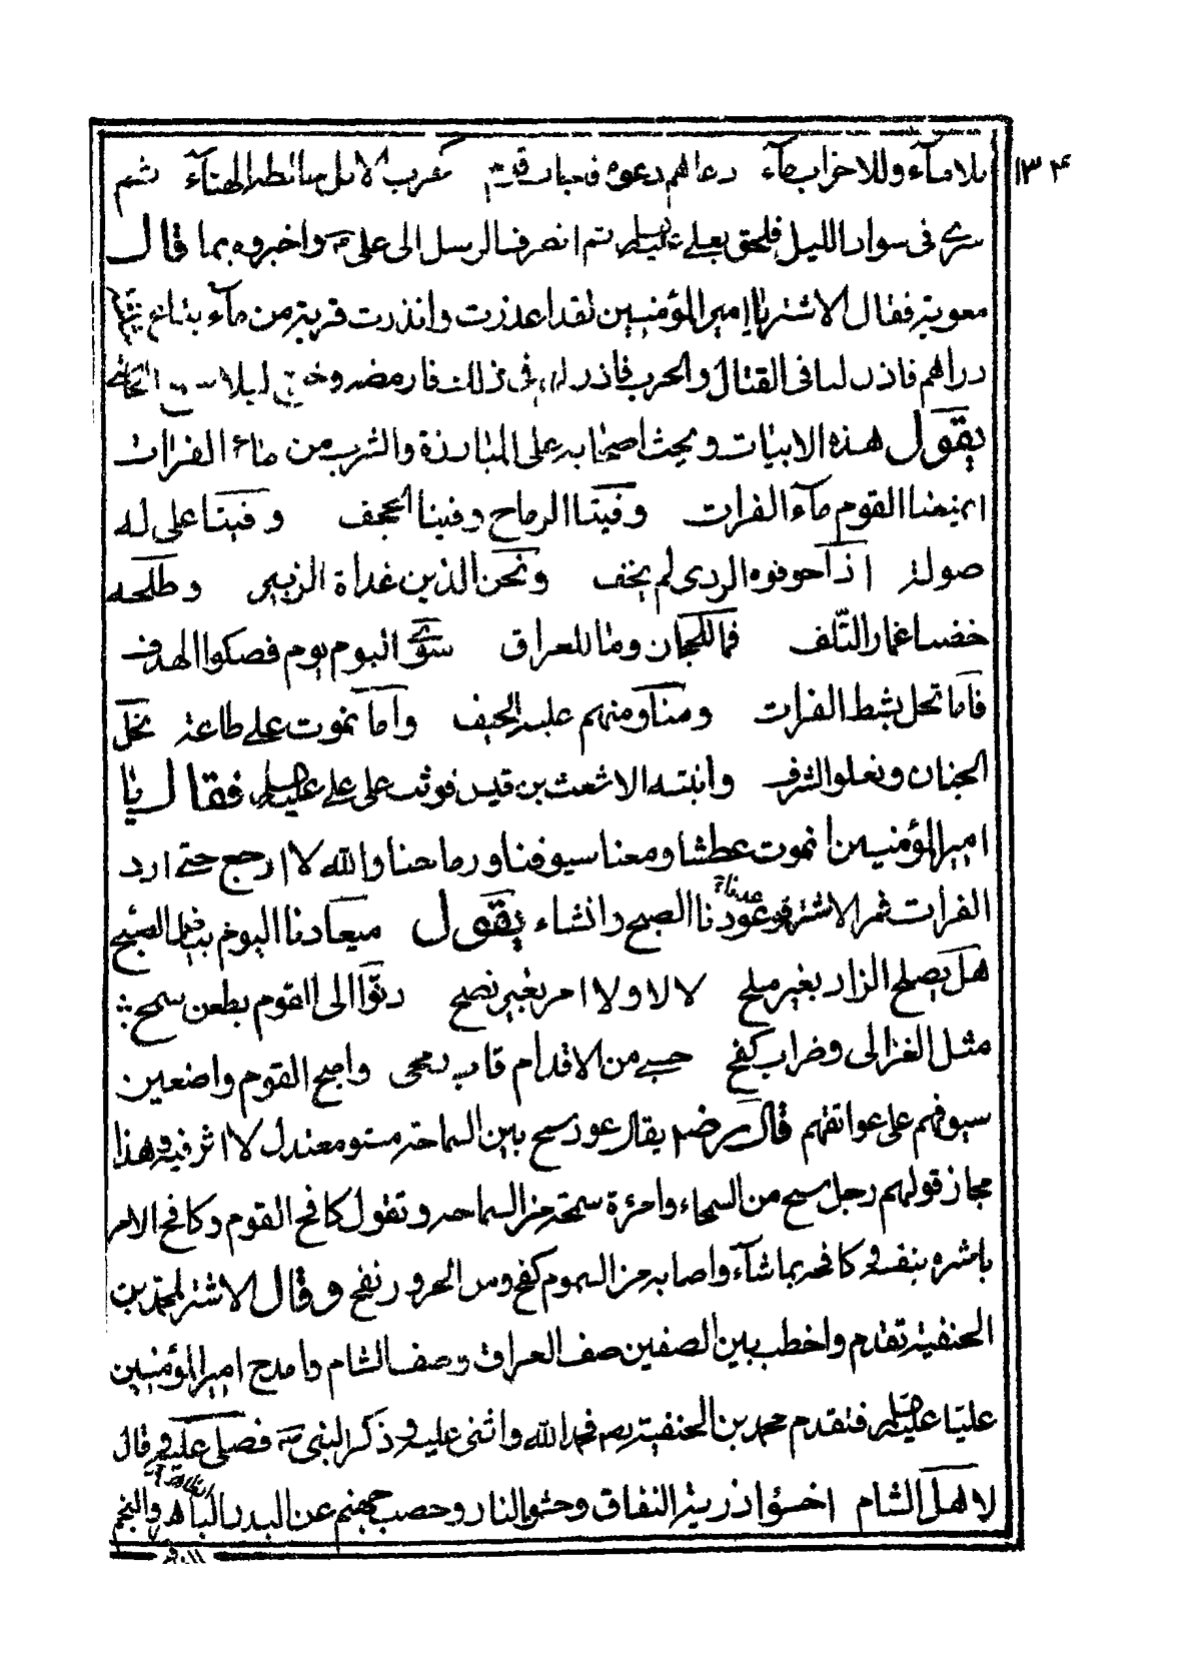 ١٣٤
بلا ماء وللاحزاب ماء دعاهم دعوة فجاب قوم كجرب الابل خالطه الهناء ثم
سرى فى سواد الليل فلحق بعلى عليه السلم ثم انصرف الرسل الى على ع واخبروه بما قال
معوية فقال الاشتر يا امير المؤمنين لقد اعذرت وانذرت قربة من ماء
دراهم فاذن لنا فى القتال والحرب فاذن لهم فى ذلك
يقول هذه الابيات ويحث اصحابه على المبارزة والشرب من ماء الفرات
ايمنعنا القوم ماء الفرات وفينا الرماح وفينا الحجف وفينا على له
صولة اذا خوفوه الردى لم يخف ونحن الذين غداة الزبير وطلحه
خضنا غمار التلف فما للحجاز وما للعراق سوى اليوم يوم فصكوا الهدف
فاما نحل بشط الفرات ومنا ومنهم عليه الجيف واما نموت على طاعة نحل
الجنان ونعلو الشرف وانبته الاشعث بن قيس فوثب على على عليه السلم فقال يا
امير المؤمنين انموت عطشا ومعنا سيوفنا ورماحنا والله لا ارجع حتى ارد
الفرات ثم الاشتر فوعودنا الصبح وانشاء يقول ميعادنا اليوم بياض الصبح
هل يصلح الزاد بغير ملح لا لا ولا امر بغير نصح دنوا الى القوم بطعن سمح
مثل الغزالى وضراب كفح حسبى من الاقدام قاب رمحى واصبح القوم واضعين
سيوفهم على عواتقهم قال رض يقال عود سمح بين السماحة مستو معتدل لا اثر فيه وهذا
مجاز قولهم رجل سمح من السمحاء وامرءة سمحة من السماحه وتقول كافح القوم وكافح الامر
باشره بنفسه وكافحه بما شاء واصابه من السموم كفح ومن الحرور نفح وقال الاشتر لمحمد بن
الحنفية تقدم واخطب بين الصفين صف العراق وصف الشام وامدح امير المؤمنين
عليا عليه السلم فتقدم محمد بن الحنفية فحمد الله واثنى عليه وذكر النبى ص فصلى عليه وقال
لاهل الشام اخسؤا ذرية النفاق وحشو النار وحصب جهنم عن البدر الباهر والنجم